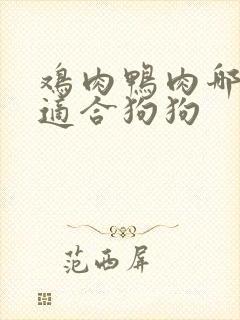 鸡肉鸭肉哪
适合狗狗
范西屏